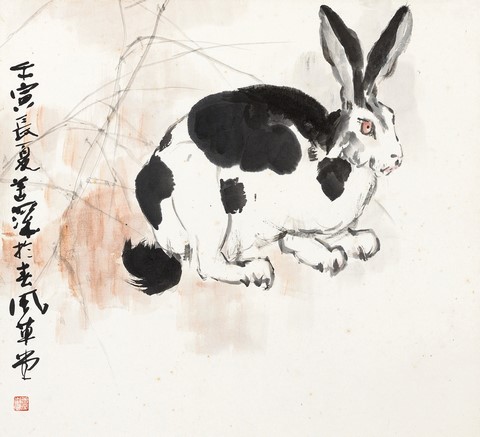 壬寅長夏善深於春風草堂